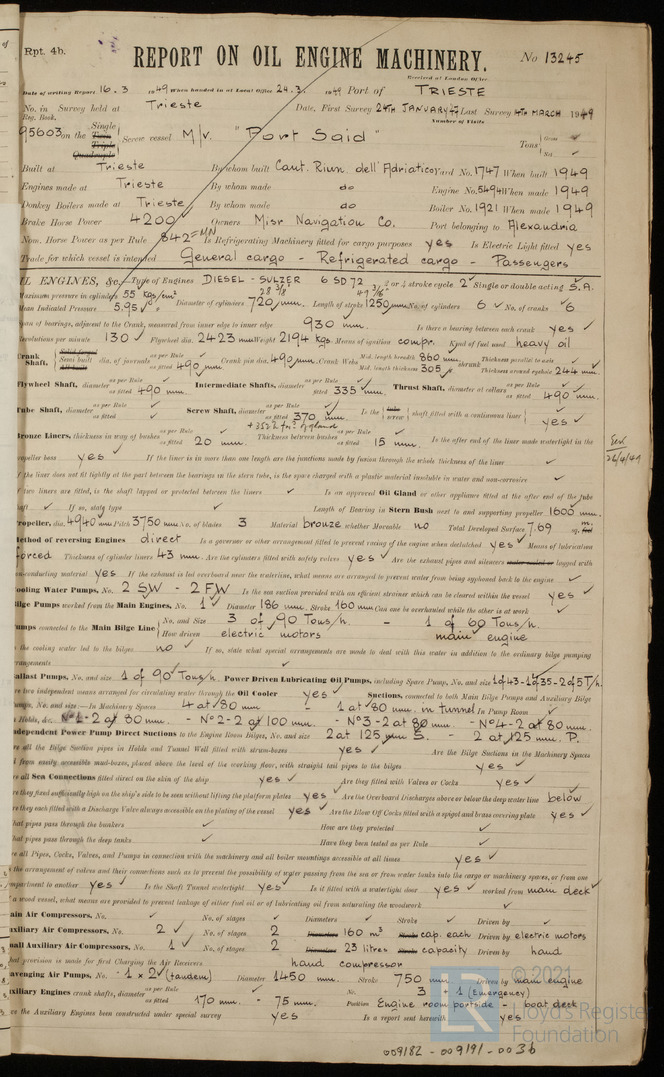 Rpt. 4b.
REPORT ON OIL ENGINE MACHINERY.
No 13245
Received at London Office
Date of writing Report 16.3 1949 When handed in at Local Office 24.3. 1949 Port of TRIESTE
No. in Survey held at Trieste Date, First Survey 24TH JANUARY 47 Last Survey 4TH MARCH 1949
Reg. Book. Number of Visits
95603 on the Single Twin Triple Quadruple Screw vessel M/v. "Port Said" Tons Gross Net
Built at Trieste By whom built Cant. Riun. dell'Adriatico Yard No. 1747 When built 1949
Engines made at Trieste By whom made do Engine No. 5494 When made 1949
Donkey Boilers made at Trieste By whom made do Boiler No. 1921 When made 1949
Brake Horse Power 4200 Owners Misr Navigation Co. Port belonging to Alexandria
Nom. Horse Power as per Rule 842 = MN Is Refrigerating Machinery fitted for cargo purposes yes Is Electric Light fitted yes
Trade for which vessel is intended General cargo - Refrigerated cargo - Passengers
IL ENGINES, &c. Type of Engines DIESEL - SULZER 6 SD 72 2 or 4 stroke cycle 2 Single or double acting S.A.
Maximum pressure in cylinders 55 kgs/cm² Diameter of cylinders 720 mm. Length of stroke 1250 mm. No. of cylinders 6 No. of cranks 6
Mean Indicated Pressure 5.95
Span of bearings, adjacent to the Crank, measured from inner edge to inner edge 930 mm. Is there a bearing between each crank yes
Revolutions per minute 130 Flywheel dia. 2423 mm Weight 2194 kgs Means of ignition compr. Kind of fuel used heavy oil
Crank Shaft, Solid forged Semi built All built dia. of journals as per Rule as fitted 490 mm. Crank pin dia. 490 mm. Crank Webs Mid. length breadth 860 mm Mid. length thickness 305 shrunk Thickness parallel to axis Thickness around eyehole 244 mm.
Flywheel Shaft, diameter as per Rule as fitted 490 mm. Intermediate Shafts, diameter as per Rule as fitted 335 mm. Thrust Shaft, diameter at collars as per Rule as fitted 490 mm.
Tube Shaft, diameter as per Rule as fitted Screw Shaft, diameter as per Rule as fitted 370 mm. Is the tube screw shaft fitted with a continuous liner yes
Bronze Liners, thickness in way of bushes as per Rule as fitted 20 mm. Thickness between bushes as per Rule as fitted 15 mm. Is the after end of the liner made watertight in the
propeller boss yes If the liner is in more than one length are the junctions made by fusion through the whole thickness of the liner
If the liner does not fit tightly at the part between the bearings in the stern tube, is the space charged with a plastic material insoluble in water and non-corrosive
If two liners are fitted, is the shaft lapped or protected between the liners Is an approved Oil Gland or other appliance fitted at the after end of the tube
shaft If so, state type Length of Bearing in Stern Bush next to and supporting propeller 1600 mm.
Propeller, dia. 4940 mm Pitch 3750 mm No. of blades 3 Material bronze whether Moveable no Total Developed Surface 7.69 sq. m.
Method of reversing Engines direct Is a governor or other arrangement fitted to prevent racing of the engine when declutched yes Means of lubrication
forced Thickness of cylinder liners 43 mm. Are the cylinders fitted with safety valves yes Are the exhaust pipes and silencers water cooled or lagged with
non-conducting material yes If the exhaust is led overboard near the waterline, what means are arranged to prevent water from being syphoned back to the engine
Cooling Water Pumps, No. 2 SW - 2 FW Is the sea suction provided with an efficient strainer which can be cleared within the vessel yes
Bilge Pumps worked from the Main Engines, No. 1 Diameter 186 mm. Stroke 160 mm Can one be overhauled while the other is at work
Pumps connected to the Main Bilge Line No. and Size 3 of 90 Tons/h. - 1 of 60 Tons/h.
How driven electric motors main engine
Is the cooling water led to the bilges no If so, state what special arrangements are made to deal with this water in addition to the ordinary bilge pumping
arrangements
Ballast Pumps, No. and size 1 of 90 Tons/h. Power Driven Lubricating Oil Pumps, including Spare Pump, No. and size 1 of 43 - 1 of 35 - 2 of 5 T/h.
Are two independent means arranged for circulating water through the Oil Cooler yes Suctions, connected to both Main Bilge Pumps and Auxiliary Bilge
Pumps, No. and size:—In Machinery Spaces 4 at 80 mm - 1 at 80 mm. in tunnel In Pump Room
In Holds, &c. No1-2 at 80 mm. - No2-2 at 100 mm. - No3-2 at 80 mm. - No4-2 at 80 mm.
Independent Power Pump Direct Suctions to the Engine Room Bilges, No. and size 2 at 125 mm S. - 2 at 125 mm. P.
Are all the Bilge Suction pipes in Holds and Tunnel Well fitted with strum-boxes yes Are the Bilge Suctions in the Machinery Spaces
led from easily accessible mud-boxes, placed above the level of the working floor, with straight tail pipes to the bilges yes
Are all Sea Connections fitted direct on the skin of the ship yes Are they fitted with Valves or Cocks yes
Are they fixed sufficiently high on the ship's side to be seen without lifting the platform plates yes Are the Overboard Discharges above or below the deep water line below
Are they each fitted with a Discharge Valve always accessible on the plating of the vessel yes Are the Blow Off Cocks fitted with a spigot and brass covering plate yes
What pipes pass through the bunkers How are they protected
What pipes pass through the deep tanks Have they been tested as per Rule
Are all Pipes, Cocks, Valves, and Pumps in connection with the machinery and all boiler mountings accessible at all times yes
Is the arrangement of valves and their connections such as to prevent the possibility of water passing from the sea or from water tanks into the cargo or machinery spaces, or from one
compartment to another yes Is the Shaft Tunnel watertight yes Is it fitted with a watertight door yes worked from main deck
If a wood vessel, what means are provided to prevent leakage of either fuel oil or of lubricating oil from saturating the woodwork
Main Air Compressors, No. No. of stages Diameters Stroke Driven by
Auxiliary Air Compressors, No. 2 No. of stages 2 Diameters 160 m³ Stroke cap. each Driven by electric motors
Small Auxiliary Air Compressors, No. 1 No. of stages 2 Diameters 23 litres Stroke capacity Driven by hand
What provision is made for first Charging the Air Receivers hand compressor
Scavenging Air Pumps, No. 1 x 2 (tandem) Diameter 1450 mm. Stroke 750 mm. Driven by main engine
Auxiliary Engines crank shafts, diameter as per Rule as fitted 170 mm. - 75 mm. No. 3 + 1 (Emergency) Position Engine room portside - boat deck
Have the Auxiliary Engines been constructed under special survey yes Is a report sent herewith yes
© 2021
Lloyd's Register
Foundation
009182 - 009191 - 0036